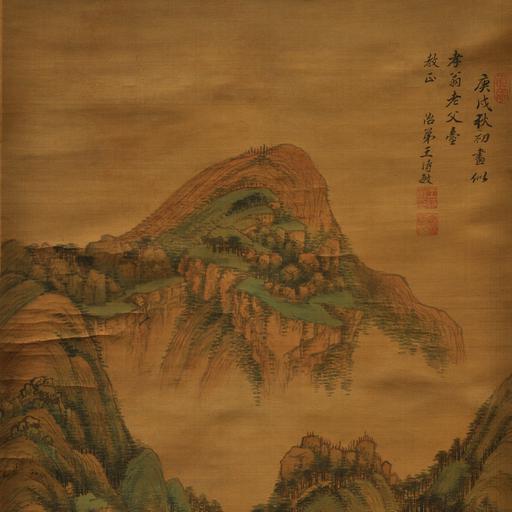 庚戌秋初畫似
孝翁老父臺
教正 治弟王時敏